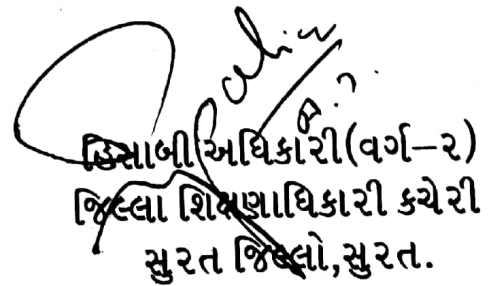 હિસાબી અધિકારી(વર્ગ–૨)
જિલ્લા શિક્ષણાધિકારી કચેરી
સુરત જિલ્લો,સુરત.